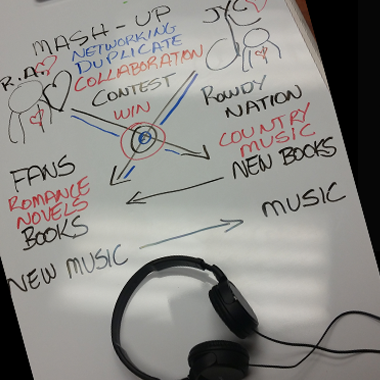 MASH-UP
JYC
NETWORKING
DUPLICATE
COLLABORATION
R.A.
CONTEST
WIN
ROWDY
NATION
COUNTRY
MUSIC
NEW BOOKS
FANS
ROMANCE
NOVELS
BOOKS
MUSIC
NEW MUSIC